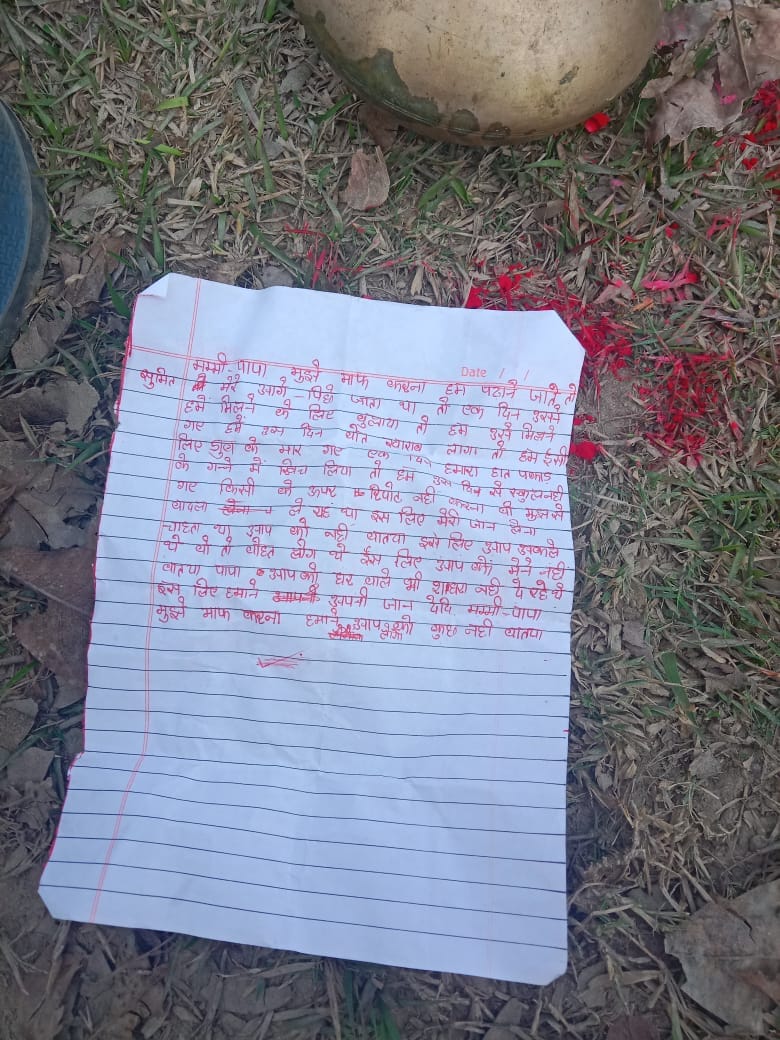 Date / /
मम्मी-पापा मुझे माफ करना हम पढाने जाते तो
सुमित मेरे आगे-पिछे जाता था तो एक दिन उसने
हमे मिलने के लिए बुलाया तो हम उसे मिलने
गए हमे उस दिन बोत खाराब लागा तो हम ईसी
लिए झुल के मार गए एक दिन हमारा हात पकाड
के गन्ने में खिच लिया तो हम उस दिन से स्कुल नही
गए किसी के ऊपर रिपोट नही कारना वो मुझसे
बादला ले रहा था इस लिए मेरी जान लेना
चाहता था आप को नही बातया इसे लिए आप
थे वो तो बोहत लोग थे ईस लिए आप को मेने नही
बातया पापा आप को घर वाले भी नही दे रहे थे
इस लिए हमाने आपनी जान देदि मम्मी-पापा
मुझे माफ कारना हमाने आप को कुछ नही बातया